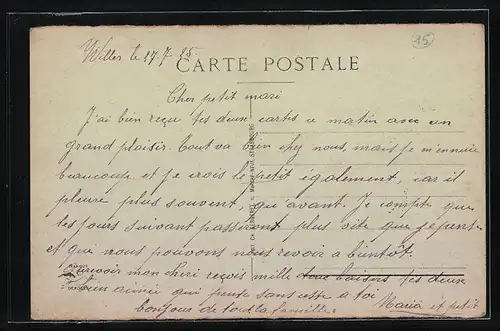 Willer le 27.7.25.
15
CARTE POSTALE
Cher petit mari
J'ai bien reçu tes deux cartes ce matin avec un
grand plaisir. Tout va bien chez nous, mais je m'ennuie
beaucoup et je crois le petit également, car il
pleure plus souvent, qu'avant. Je compte que
les jours suivant passiront plus vite que je pense
et qui nous pouvons nous revoir à bientôt.
Aurevoir mon cheri reçois mille tes deux
bien aimée qui pense sans cesse a toi
bonjour de tout la famille. Maria et petit